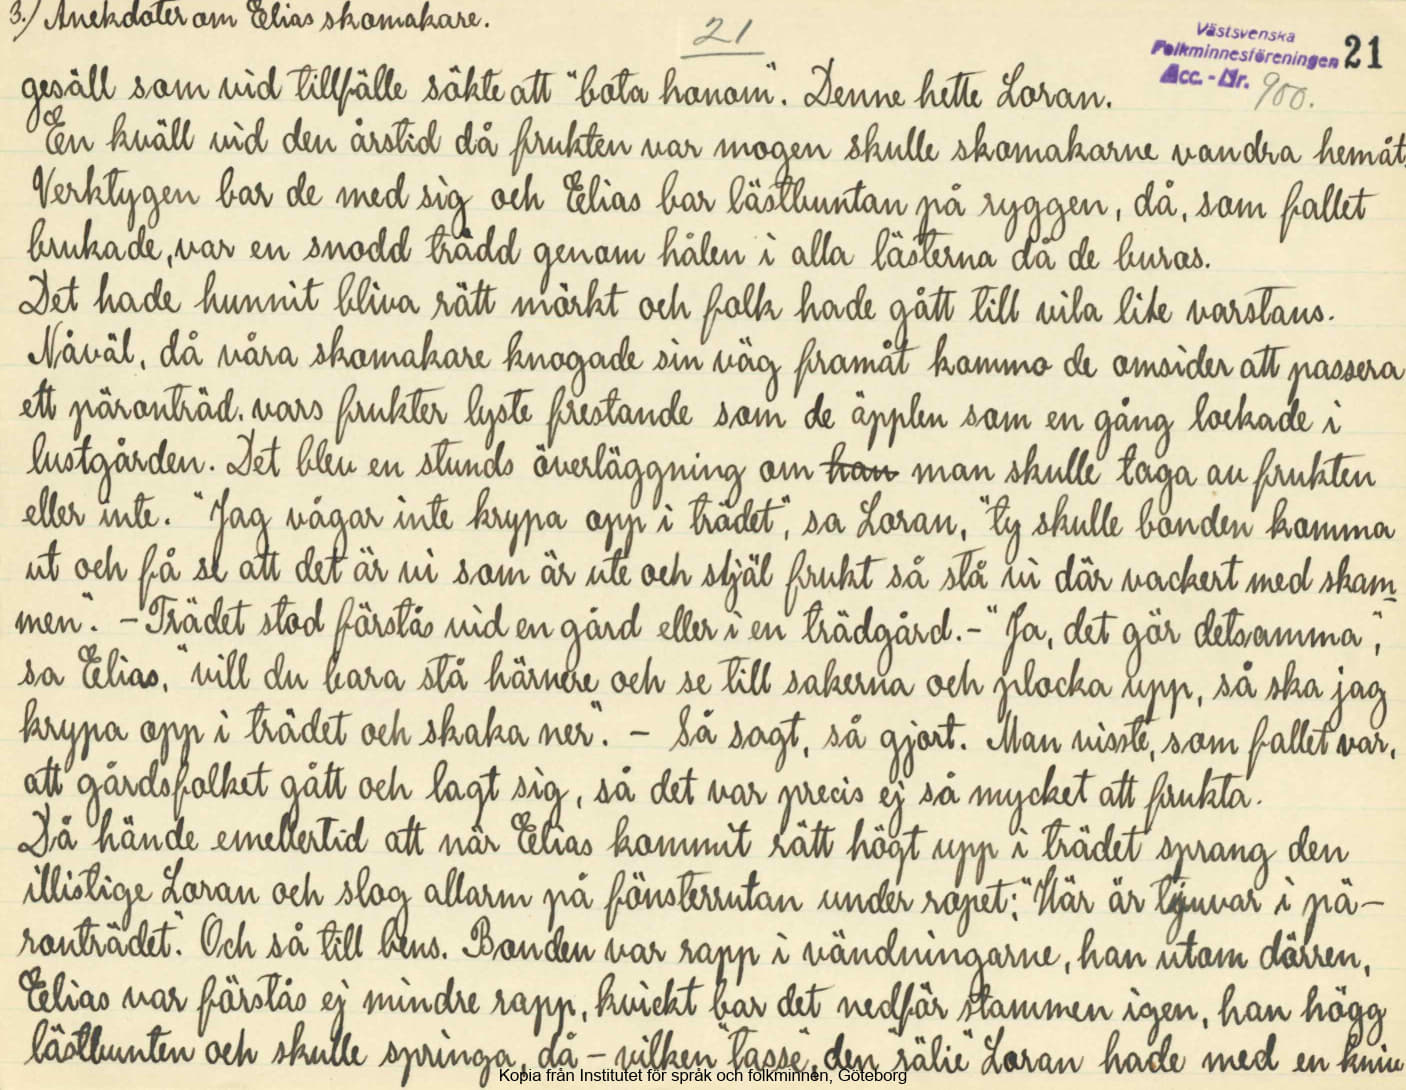 3.) Anekdoter om Elias skomakare.
21
Västsvenska
Folkminnesföreningen
Acc.-Nr. 900.
21
gesäll som vid tillfälle sökte att "bota honom". Denne hette Loran.
En kväll vid den årstid då frukten var mogen skulle skomakarne vandra hemåt.
Verktygen bar de med sig och Elias bar lästbuntan på ryggen, då, som fallet
brukade, var en snodd trådd genom hålen i alla lästerna då de buros.
Det hade hunnit bliva rätt mörkt och folk hade gått till vila lite varstans.
Nåväl, då våra skomakare knogade sin väg framåt kommo de omsider att passera
ett päronträd, vars frukter lyste frestande som de äpplen som en gång lockade i
lustgården. Det blev en stunds överläggning om han man skulle taga av frukten
eller inte. "Jag vågar inte krypa opp i trädet", sa Loran, "ty skulle bonden komma
ut och få se att det är vi som är ute och stjäl frukt så stå vi där vackert med skam-
men". - Trädet stod förstås vid en gård eller i en trädgård. - "Ja, det gör detsamma",
sa Elias, "vill du bara stå härnere och se till sakerna och plocka upp, så ska jag
krypa opp i trädet och skaka ner". - Så sagt, så gjort. Man visste, som fallet var,
att gårdsfolket gått och lagt sig, så det var precis ej så mycket att frukta.
Då hände emellertid att när Elias kommit rätt högt upp i trädet sprang den
illistige Loran och slog allarm på fönsterrutan under ropet: "Här är tjuvar i pä-
ronträdet". Och så till bens. Bonden var rapp i vändningarne, han utom dörren,
Elias var förstås ej mindre rapp, kvickt bar det nedför stammen igen, han högg
lästbunten och skulle springa, då - vilken "tasse", den "sälie" Loran hade med en kniv
Kopia från Institutet för språk och folkminnen, Göteborg